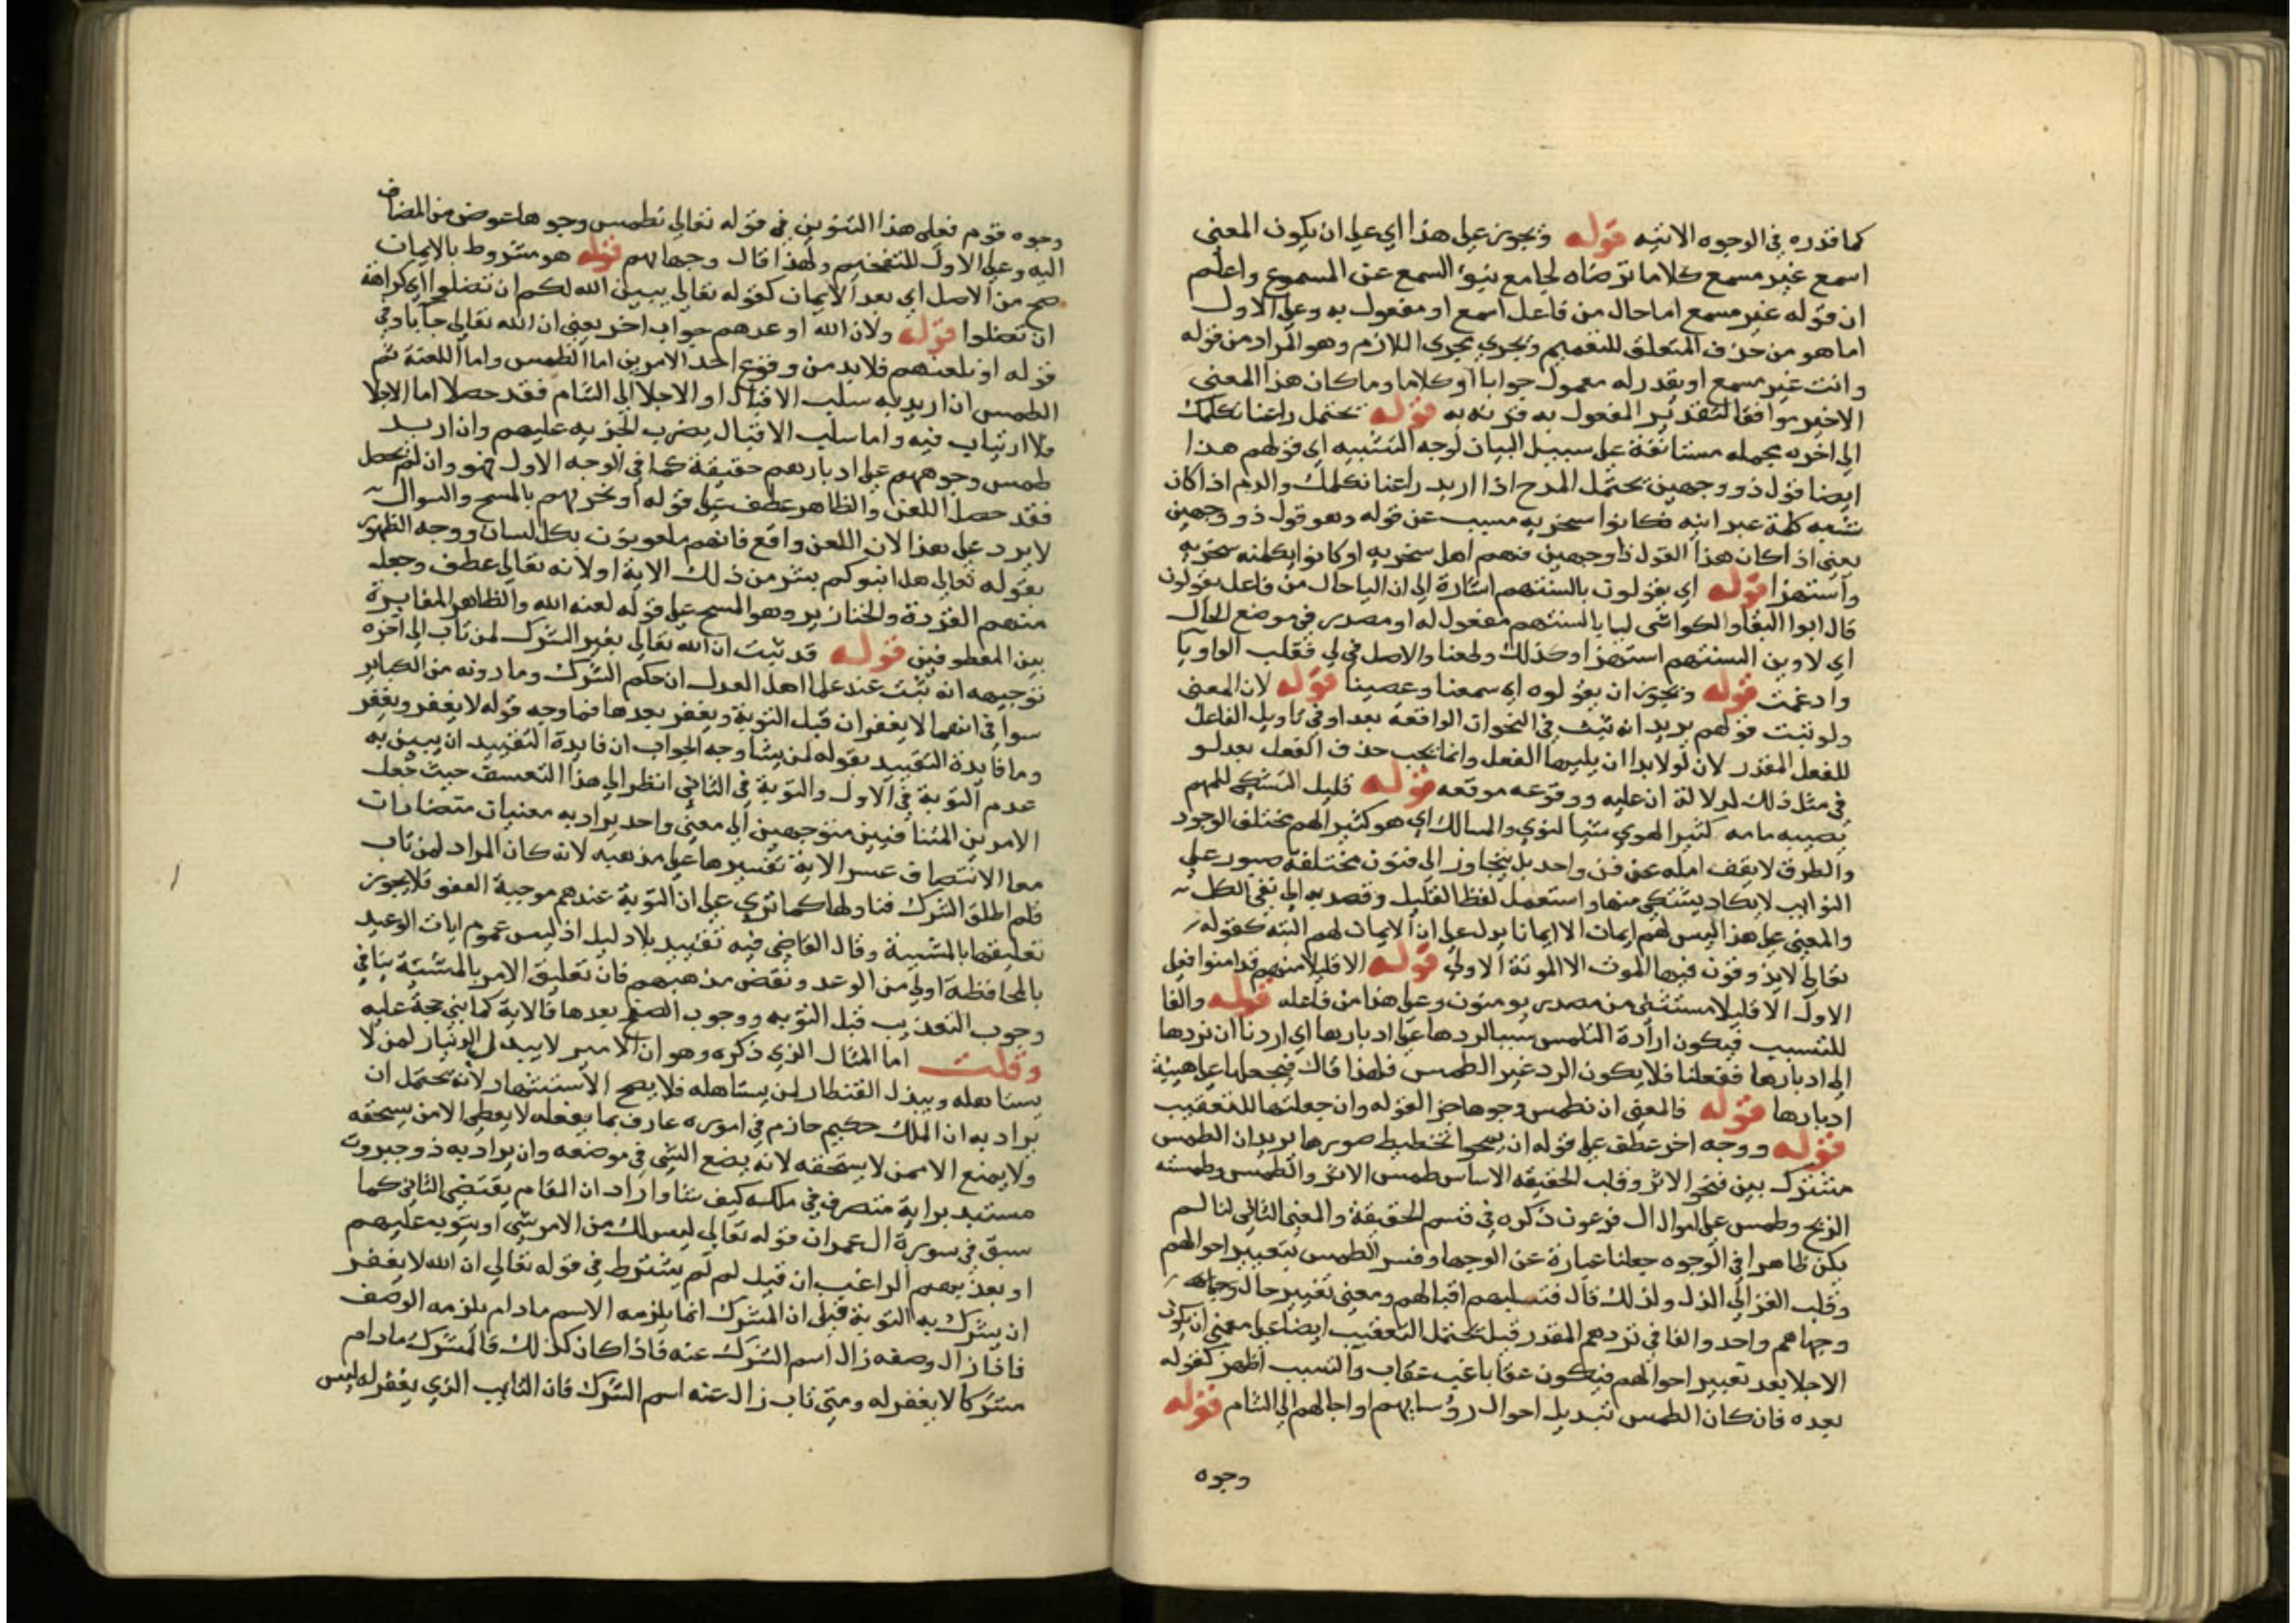 كما قدره في الوجوه الاتيه قوله ويجوز على هذا اي على ان يكون المعنى
اسمع غير مسمع كلاما ترضاه لجامع نبو السمع عن المسموع واعلم
ان قوله غير مسمع اما حال من فاعل اسمع او مفعول به وعلى الاول
اما هو من حذف المتعلق للتعميم ويجري مجرى اللازم وهو المراد من قوله
وانت غير مسمع او يقدر له معمول جوابا او كلاما وما كان هذا المعنى
الاخير موافقا لتقدير المفعول به قرنه به قوله يحتمل راعنا نكلمك
الى اخره جمله مستانفة على سبيل البيان لوجه التشبيه اي قولهم هذا
ايضا قول ذو وجهين يحتمل المدح اذا اريد راعنا نكلمك والذم اذا كان
شبه كلمة عبرانيه فكانوا سخريه مسبب عن قوله وهو قول ذو وجهين
يعني اذا كان هذا القول ذا وجهين فهم اهل سخريه او كانوا بكلمته سخريه
واستهزا قوله اي يفتلون بالسنتهم اشارة الى ان ليا حال من فاعل يقولون
قال ابوا البقا والكواشي ليا بالسنتهم مفعول له او مصدر في موضع الحال
اي لاوين السنتهم استهزا وكذلك وطعنا والاصل في لي فقلب الواو يا
وادغمت قوله ويجوز ان يقولوه اي سمعنا وعصينا قوله لان المعنى
ولو ثبت قولهم يريد انه ثبت في النحو ان الواقعة بعد لو في تاويل الفاعل
للفعل المقدر لان لو لا بد ان يليها الفعل وانما يجب حذف الفعل بعد لو
في مثل ذلك لدلالة ان عليه ووقوعه موقعه قوله قليل التشكي للمهم
يصيبه مامه كثير الهوى شتى النوى والمسالك اي هو كثير الهم مختلف الوجوه
والطرق لا يقف امله عن فن واحد بل يتجاوز الى فنون مختلفة صبور على
النوايب لا يكاد يشتكي منها واستعمل لفظ القليل وقصد به الى نفي الكل
والمعنى على هذا ليس لهم ايمان الا ايمانا يدل على ان لا ايمان لهم البته كقوله
تعالى لا يذوقون فيها الموت الا الموتة الاولى قوله الا قليلا منهم قد امنوا فعلى
الاول الا قليلا مستثنى من مصدر يومنون وعلى هذا من فاعله قوله والفا
للتسبيب فيكون ارادة الطمس سببا لردها على ادبارها اي اردنا ان نردها
الى ادبارها ففعلنا فلا يكون الرد غير الطمس فلهذا قال فنجعلها على هيئة
ادبارها قوله فالمعنى ان نطمس وجوها جزا لقوله وان جعلتها للتعقيب
قوله ووجه اخر عطف على قوله ان نمحوا تخطيط صورها يريد ان الطمس
مشترك بين محو الاثر وقلب الحقيقه الاساس طمس الاثر وانطمس وطمسته
الريح وطمس على اموال ال فرعون ذكره في قسم الحقيقة والمعنى الثاني لما لم
يكن ظاهرا في الوجوه جعلنا عبارة عن الوجها وفسر الطمس بتغيير احوالهم
وقلب العز الى الذل ولذلك قال فنسلبهم اقبالهم ومعنى تغيير حال وجهاهم
وجهاهم واحد والفا في نردهم المقدر قيل يحتمل التعقيب ايضا على معنى ان يكون
الاجلا بعد تغيير احوالهم فيكون عقابا غب عقاب والتسبب اظهر كقوله
بعده فان كان الطمس تبديل احوال رؤسايهم واجالهم الى الشام قوله
وجوه
وجوه قوم فعلى هذا التنوين في قوله تعالى نطمس وجوها عوض من المضاف
اليه وعلى الاول للتفخيم ولهذا قال وجهايهم قوله هو مشروط بالايمان
صح من الاصل اي بعدم الايمان كقوله تعالى يبين الله لكم ان تضلوا اي كراهة
ان تضلوا قوله ولان الله اوعدهم جواب اخر يعني ان الله تعالى جا باو في
قوله او نلعنهم فلا بد من وقوع احد الامرين اما الطمس واما اللعنة ثم
الطمس ان اريد به سلب الاقبال او الاجلا الى الشام فقد حصلا اما الاجلا
فلا ارتياب فيه واما سلب الاقبال بضرب الجزيه عليهم وان اريد
طمس وجوههم على ادبارهم حقيقة كما في الوجه الاول فهو وان لم يحصل
فقد حصل اللعن والظاهر عطف على قوله او نخزيهم بالمسخ والسوال
لا يرد على هذا لان اللعن واقع فانهم ملعونون بكل لسان ووجه الظهور
بقوله تعالى هل انبوكم بشر من ذلك الاية اولا انه تعالى عطف وجعل
منهم القردة والخنازير وهو المسخ على قوله لعنه الله والظاهر المغايرة
بين المعطوفين قوله قد ثبت ان الله تعالى يغفر الشرك لمن تاب الى اخره
توجيهه انه ثبت عند علما اهل العدل ان حكم الشرك وما دونه من الكباير
سوا في انهما لا يغفران قبل التوبة ويغفر بعدها فما وجه قوله لا يغفر ويغفر
وما فايدة التقييد بقوله لمن يشا وجه الجواب ان فايدة التقييد ان يبين به
عدم التوبة في الاول والتوبة في الثاني انظر الى هذا التعسف حيث جعل
الامرين المتنافيين متوجهين الى معنى واحد يراد به معنيان متضادان
معا الانتصاف عسر الاية تفسيرها على مذهبه لانه كان المراد لمن تاب
فلم اطلق الشرك فتاولها كما ترى على ان التوبة عندهم موجبة العفو فلا يجوز
تعليقها بالمشيئة وقال القاضي فيه تقييد بلا دليل اذ ليس عموم ايات الوعيد
بالمحافظة اولى من الوعد ونقض مذهبهم فان تعليق الامر بالمشيئة ينافي
وجوب التعذيب قبل التوبه ووجوب الصفح بعدها فالاية كما بنى حجة عليه
وقلت اما المثال الذي ذكره وهو ان الامير لا يبذل الدينار لمن لا
يستاهله ويبذل القنطار لمن يستاهله فلا يصح الاستشهاد لانه يحتمل ان
يراد به ان الملك حكيم حازم في اموره عارف بما يفعله لا يعطي الا من يستحقه
ولا يمنع الا ممن لا يستحقه لانه يضع الشي في موضعه وان يراد به ذو جبروت
مستبد برايه متصرف في ملكه كيف شا واراد ان المقام يقتضي الثاني كما
سبق في سورة ال عمران قوله تعالى ليس لك من الامر شي او يتوب عليهم
او يعذبهم الراغب ان قيل لم لم يشترط في قوله تعالى ان الله لا يغفر
ان يشرك به التوبة قيل ان المشرك انما يلزمه الاسم مادام يلزمه الوصف
فاذا زال وصفه زال اسم الشرك عنه فاذا كان كذلك فالمشرك مادام
مشركا لا يغفر له ومتى تاب زال عنه اسم الشرك فان التايب الذي يغفر له ليس